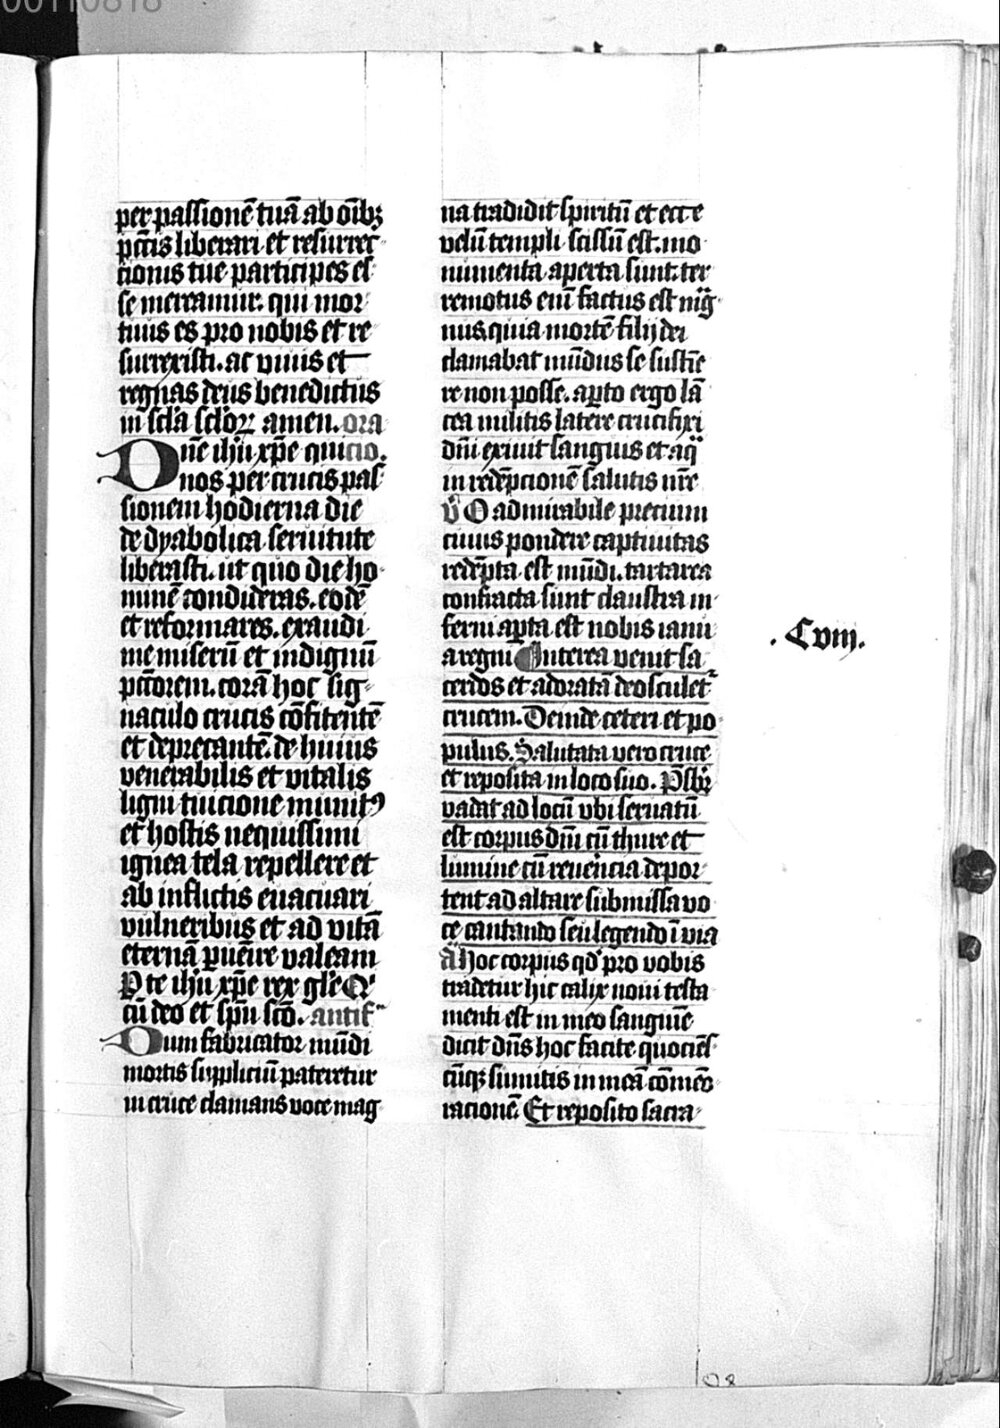 00110818
per passionē tuā ab oībꝫ
pctīs liberari et resurrec
cionis tue participes es
se mereamur. qui mor
tuus es pro nobis et re
surrexisti. ac viuis et
regnas deus benedictus
in scl̄a scl̄oꝝ amen. ora
Dn̄e ihū xp̄e qui cio.
nos per crucis pas
sionem hodierna die
de dyabolica seruitute
liberasti. ut quo die ho
minē condideras. eodē
et reformares. exaudi
me miserū et indignū
pctōrem. corā hoc sig
naculo crucis cōfitentē
et deprecantē. de huius
venerabilis et vitalis
ligni tuicione munitꝰ
et hostis nequissimi
ignea tela repellere et
ab inflictis euacuari
vulneribus et ad vitā
eternā ꝑuēire valeam
P te ihū xp̄e rex gl̄e Qͥ
cū deo et sp̄u sc̄o. antif
Dum fabricator mūdi
mortis suppliciū pateretur
in cruce clamans voce mag
na tradidit spiritū et ecce
velū templi scissū est. mo
numenta aperta sunt. ter
remotus eni̅ factus est mag̅
nus. quia mortē filij dei
clamabat mūdus se sustīe
re non posse. aꝑto ergo lā
cea militis latere crucifixi
dn̄i exiuit sanguis et aqᷓ
in redēpcionē salutis nr̄e
v̄ O admirabile precium
cuius pondere captiuitas
redēpta est mūdi. tartarea
confracta sunt claustra in
ferni aꝑta est nobis ianu
a regni Interea venit sa
.Cviij.
cerdos et adoratā deosculetᷣ
crucem. Deinde ceteri et po
pulus. Salutata vero cruce
et reposita in loco suo. Pͣsbrͥ
vadat ad locū vbi seruatū
est corpus dn̄i cū thure et
lumine cū reuēcia depor
tent ad altare submissa vo
ce cantando seu legendo ī via
ā Hoc corpus qd̓ pro vobis
tradetur hic calix noui testa
menti est in meo sanguīe
dicit dn̄s hoc facite quociēs
cūqꝫ sumitis in meā cōmēo
racionē Et reposito sacra